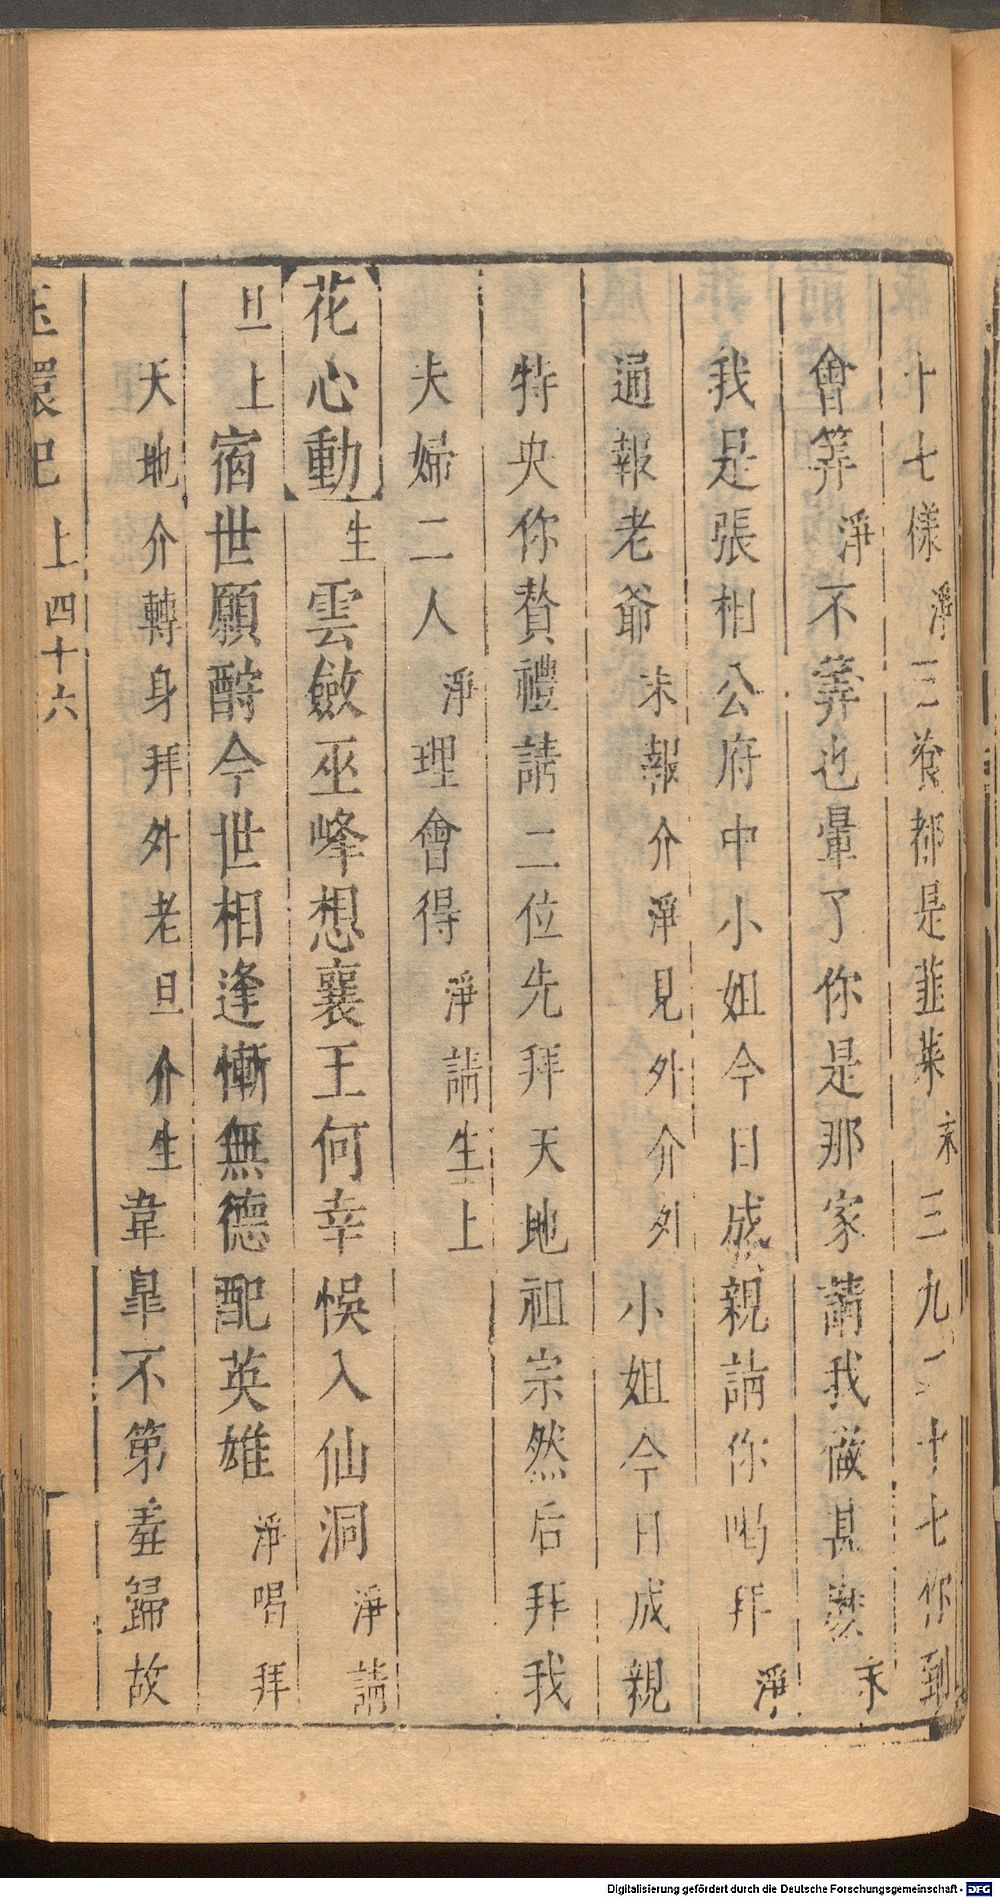 十七様淨三飱都是韮菜末三九二十七你到
會筭淨不筭也暈了你是那家請我做甚麽末
我是張相公府中小姐今日成親請你唱拜淨
通報老爺末報介淨見外介外小姐今日成親
特央你賛禮請二位先拜天地祖宗然后拜我
夫婦二人淨理會得淨請生上
花心動生雲斂巫峰想襄王何幸悞入仙洞淨請
旦上宿世願酧今世相逢慚無德配英雄淨唱拜
天地介轉身拜外老旦介生韋臯不第羞歸故
玉環記 上 四十六
Digitalisierung gefördert durch die Deutsche Forschungsgemeinschaft - DFG